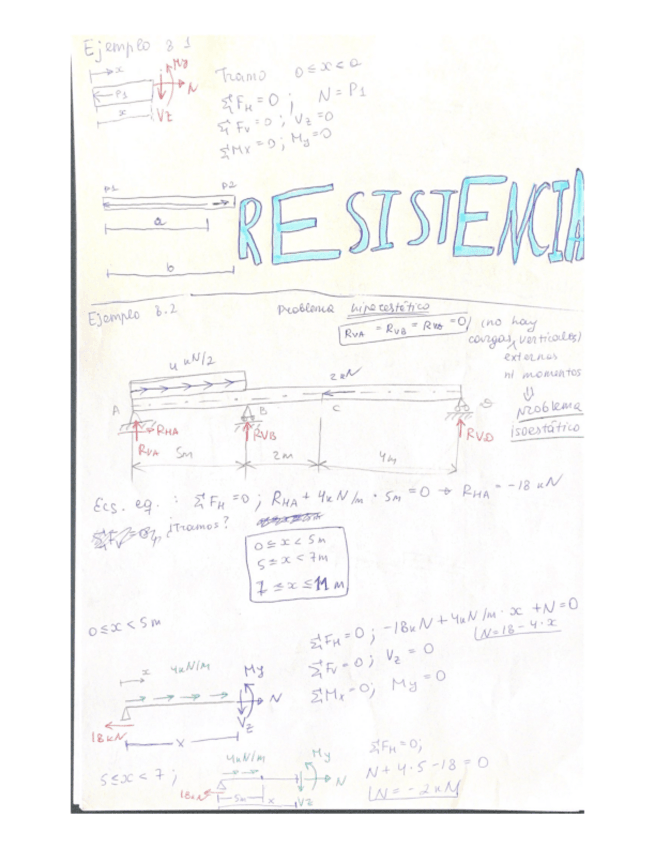 Ejemplo 8.1
x
My
P1
N
x
Vz
Tramo 0 ≤ x < a
ΣFH = 0 ; N = P1
ΣFV = 0 ; Vz = 0
ΣMx = 0 ; My = 0
P1 P2
a
b
RESISTENCIA
Ejemplo 8.2
Problema hiperestático
RVA = RVB = RVD = 0 (no hay
cargas verticales)
externas
ni momentos
⇓
problema
isoestático
2kN
A B C
RHA
RVA RVB RVD
5m 2m 4m
Ecs. eq. : ΣFH = 0 ; RHA + 4kN/m · 5m = 0 → RHA = -18 kN
¿Tramos?
0 ≤ x < 5m
5 ≤ x < 7m
7 ≤ x ≤ 11 m
0 ≤ x < 5m
ΣFH = 0 ; -18kN + 4kN/m · x + N = 0
N = 18 - 4·x
ΣFV = 0 ; Vz = 0
ΣMx = 0; My = 0
x 4kN/m My
N
Vz
18kN
x
5 ≤ x < 7 ;
4kN/m My
N
18kN
5m x Vz
ΣFH = 0;
N + 4·5 - 18 = 0
N = -2kN